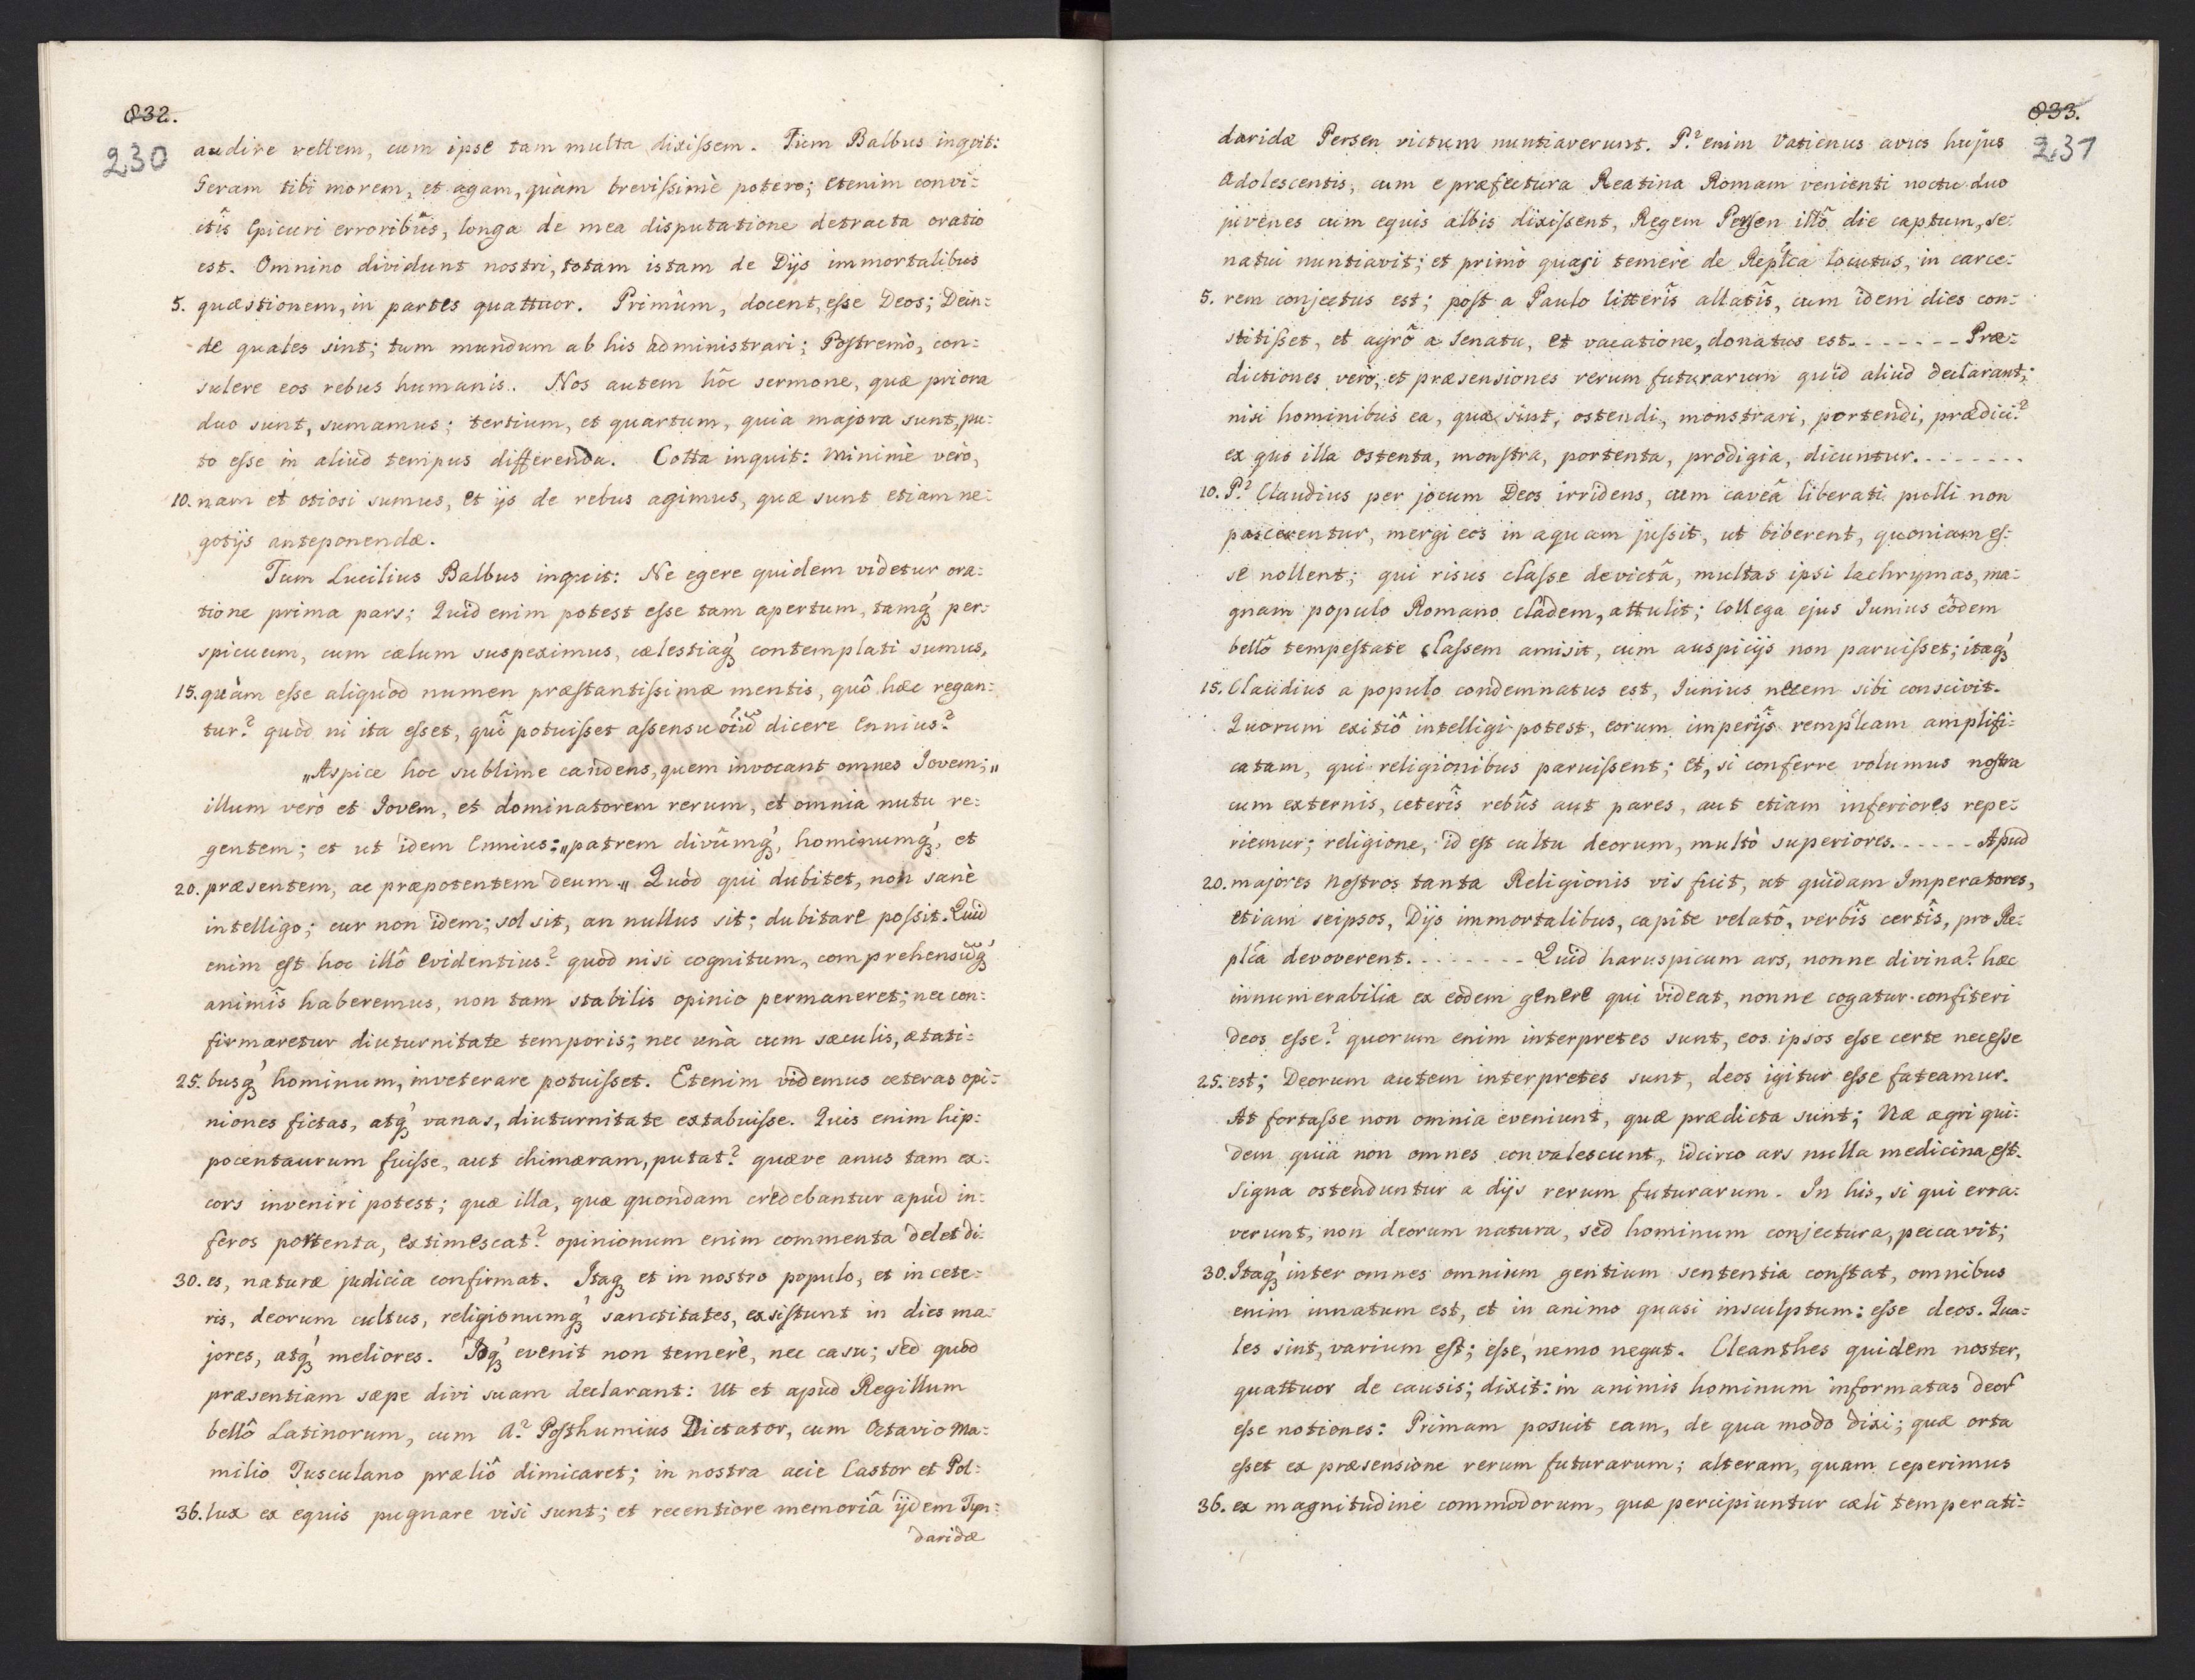 832.
230
audire vellem, cum ipse tam multa dixissem. Tum Balbus inquit:
Geram tibi morem, et agam, quàm brevissimè potero; etenim convi-
ctîs Epicuri erroribûs, longa de mea disputatione detracta oratio
est. Omnino dividunt nostri, totam istam de Dijs immortalibus
5. quæstionem, in partes quattuor. Primùm, docent, esse Deos; Dein-
de quales sint; tum mundum ab his administrari; Postremò, con-
sulere eos rebus humanis. Nos autem hôc sermone, quæ priora
duo sunt, sumamus; tertium, et quartum, quia majora sunt, pu-
to esse in aliud tempus differenda. Cotta inquit: Minimè verò,
10. nam et otiosi sumus, et ijs de rebus agimus, quæ sunt etiam ne-
gotijs anteponendæ.
Tum Lucilius Balbus inquit: Ne egere quidem videtur ora-
tione prima pars; Quid enim potest esse tam apertum, tamq́ per-
spicuum, cum cælum suspeximus, cælestiaq́ contemplati sumus,
15. quàm esse aliquod numen præstantissimæ mentis, quô hæc regan-
tur? quod ni ita esset, quî potuisset assensu oiũ dicere Ennius?
„Aspice hoc sublime candens, quem invocant omnes Jovem;„
illum verò et Jovem, et dominatorem rerum, et omnia nutu re-
gentem; et ut idem Ennius: „patrem divûmq́, hominumq́, et
20. præsentem, ac præpotentem deum„ Quòd qui dubitet, non sanè
intelligo; cur non idem; sol sit, an nullus sit; dubitare possit. Quid
enim est hoc illô evidentius? quod nisi cognitum, comprehensũq́
animîs haberemus, non tam stabilis opinio permaneret; nec con-
firmaretur diuturnitate temporis; nec unà cum sæculis, ætati-
25. busq́ hominum, inveterare potuisset. Etenim videmus ceteras opi-
niones fictas, atq́ vanas, diuturnitate extabuisse. Quis enim hip-
pocentaurum fuisse, aut chimæram, putat? quæve anus tam ex-
cors inveniri potest; quæ illa, quæ quondam credebantur apud in-
feros portenta, extimescat? opinionum enim commenta delet di-
30. es, naturæ judicia confirmat. Itaq́ et in nostro populo, et in cete-
ris, deorum cultus, religionumq́ sanctitates, exsistunt in dies ma-
jores, atq́ meliores. Idq́ evenit non temerè, nec casu; sed quod
præsentiam sæpe divi suam declarant: Ut et apud Regillum
bellô Latinorum, cum A? Posthumius Dictator, cum Octavio Ma-
milio Tusculano præliô dimicaret; in nostra acie Castor et Pol-
36. lux ex equis pugnare visi sunt; et recentiore memoriâ ijdem Tyn-
daridæ
833.
231
daridæ Persen victum nuntiaverunt. P? enim Vatienus avus hujus
adolescentis, cum e præfectura Reatina Romam venienti noctu duo
juvenes cum equis albis dixissent, Regem Persen illô die captum, se-
natui nuntiavit; et primò quasi temerè de Replĩca locutus, in carce-
5. rem conjectus est; post a Paulo litterîs allatîs, cum idem dies con-
stitisset, et agrô a Senatu, et vacatione, donatus est. - - - - - - Præ-
dictiones verò, et præsensiones rerum futurarum quid aliud declarant;
nisi hominibus ea, quæ sint, ostendi, monstrari, portendi, prædici?
ex quo illa ostenta, monstra, portenta, prodigia, dicuntur. - - - - - - -
10. P? Claudius per jocum Deos irridens, cum caveâ liberati pulli non
pascerentur, mergi eos in aquam jussit, ut biberent, quoniam es-
se nollent; qui risus classe devictâ, multas ipsi lachrymas, ma-
gnam populo Romano cladem, attulit; Collega ejus Junius eôdem
bellô tempestate classem amisit, cum auspicijs non paruisset; itaq́
15. Claudius a populo condemnatus est, Junius necem sibi conscivit.
Quorum exitiô intelligi potest, eorum imperijs remplĩcam amplifi-
catam, qui religionibus paruissent; et, si conferre volumus nostra
cum externis, ceterîs rebûs aut pares, aut etiam inferiores repe-
riemur; religione, id est cultu deorum, multò superiores. - - - - - Apud
20. majores nostros tanta Religionis vis fuit, ut quidam Imperatores,
etiam seipsos, Dijs immortalibus, capite velatô, verbîs certîs, pro Re-
plĩca devoverent. - - - - - - - Quid haruspicum ars, nonne divina? hæc
innumerabilia ex eodem genere qui videat, nonne cogatur confiteri
deos esse? quorum enim interpretes sunt, eos ipsos esse certe necesse
25. est; Deorum autem interpretes sunt, deos igitur esse fateamur.
At fortasse non omnia eveniunt, quæ prædicta sunt; Næ ægri qui-
dem quià non omnes convalescunt, idcirco ars nulla medicina est.
Signa ostenduntur a dijs rerum futurarum. In his, si qui erra-
verunt, non deorum natura, sed hominum conjectura, peccavit;
30. Itaq́ inter omnes omnium gentium sententia constat, omnibus
enim innatum est, et in animo quasi insculptum: esse deos. Qua-
les sint, varium est; esse, nemo negat. Cleanthes quidem noster,
quattuor de causis; dixit: in animis hominum informatas deor̃
esse notiones: Primam posuit eam, de qua modo dixi; quæ orta
esset ex præsensione rerum futurarum; alteram, quam ceperimus
36. ex magnitudine commodorum, quæ percipiuntur cæli temperati-